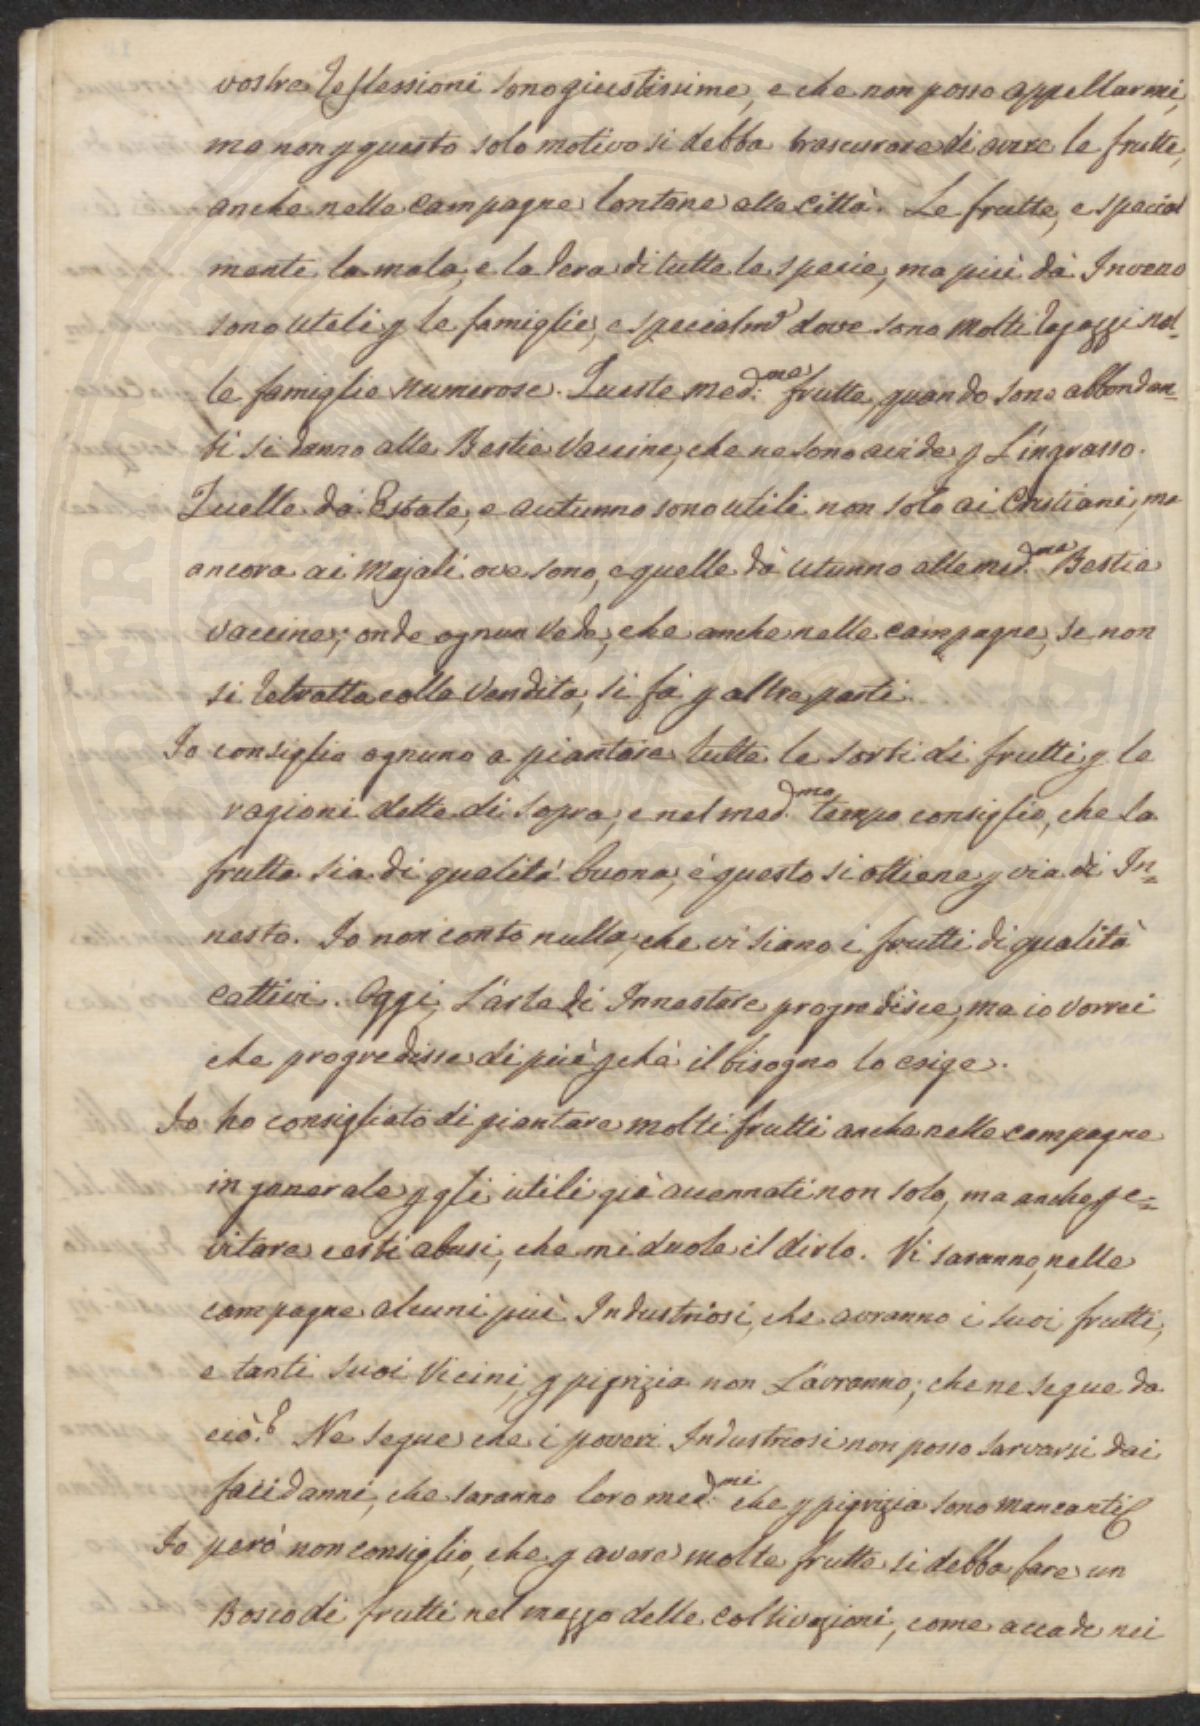 vostre Reflessioni sono giustissime, e che non posso appellarmi,
ma non p questo solo motivo si debba trascurare di avere le frutte,
anche nelle campagne lontane alle città. Le frutte, e special
mente la mela, e la Pera di tutte le specie, ma più dà Inverno
sono uteli p le famiglie, e specialm.e dove sono molti Ragazzi nel-
le famiglie numerose. Queste med:me frutte, quando sono abbondan=
ti si danno alle Bestie Vaccine, che ne sono avide p L'ingrasso.
Quelle dà Estate, e autunno sono utili non solo ai Cristiani, ma
ancora ai Majali ove sono, e quelle dà Utunno alle med.me Bestie
vaccine; onde ognun Vede, che anche nelle campagne, se non
si Retratta colla Vendita, si fà p altre parti.
Io consiglio ognuno a piantare tutte le sorti di frutti p le
ragioni dette di sopra, e nel med.mo tempo consiglio, che la
frutta sia di qualità buona, è questo si ottiene p via di In=
nesto. Io non conto nulla, che vi siano i frutti di qualità
cattivi. Oggi, L'arte di Innestare progredisce, ma io vorrei
che progredisse di più pchè il bisogno lo esige.
Io ho consigliato di piantare molti frutti anche nelle campagne
in generale p gli utili già accennati non solo, ma anche p e=
vitare certi abusi, che mi duole il dirlo. Vi saranno, nelle
campagne alcuni più Industriosi, che avranno i suoi frutti,
e tanti suoi Vicini, p pigrizia non L'avranno; che ne segue da
ciò? Ne segue che i poveri Industriosi non posso sarvarsi dai
facidanni, che saranno loro med.mi che p pigrizia sono mancanti
Io però non consiglio, che p avere molte frutte si debba fare un
Bosco di frutti nel mezzo delle coltivazioni, come accade nei